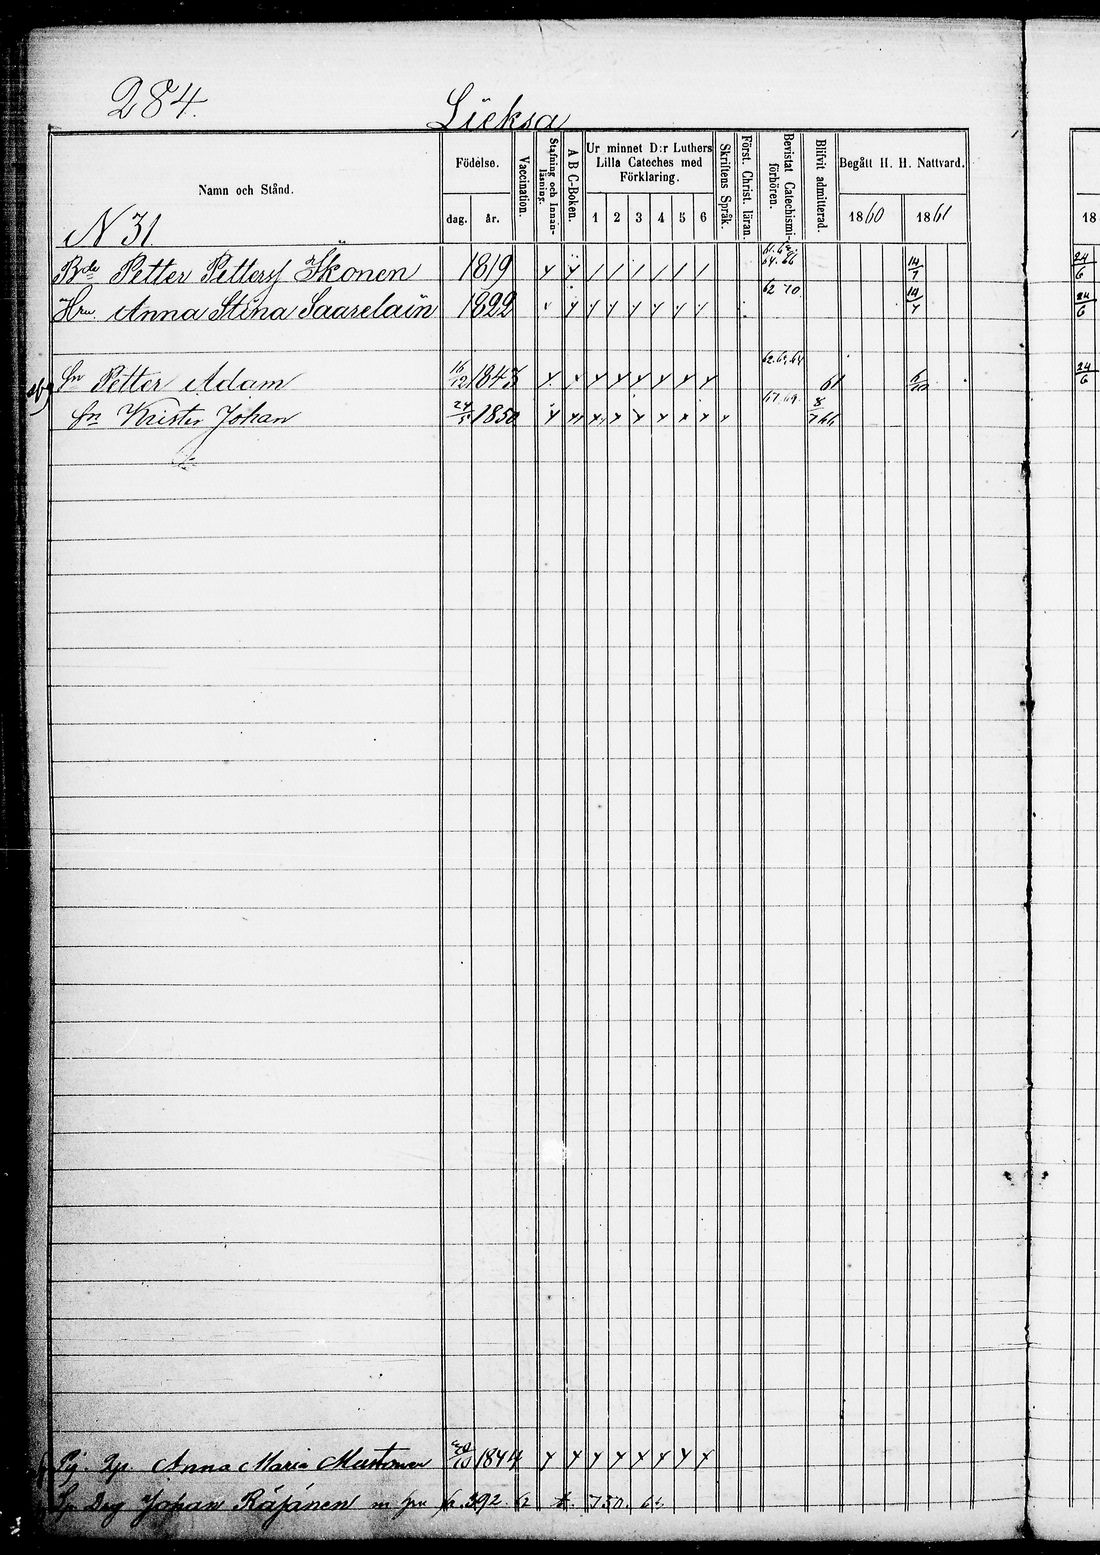 284.
Lieksa
Namn och Stånd.
Födelse.
dag. år.
Vaccination.
Stafning och Innan-läsning.
A B C-Boken.
Ur minnet D:r Luthers Lilla Cateches med Förklaring.
1 2 3 4 5 6
Skriftens Språk.
Först. Christ. läran.
Bevistat Catechismi-förhören.
Blifvit admitterad.
Begått H. H. Nattvard.
1860 1861
18
N 31.
Bde Petter Petterss Ikonen 1819 64. 66 14/7 24/6
Hru. Anna Stina Saarelain 1822 62 70 14/7 24/6
sn Petter Adam 16/12 1843 62. 63. 64 61 24/6
sn Krister Johan 24/5 1850 67. 69. 8/7 66
Pig. Anna Maria Mustonen 1844
Drg Johan Räpänen m hru 392 62